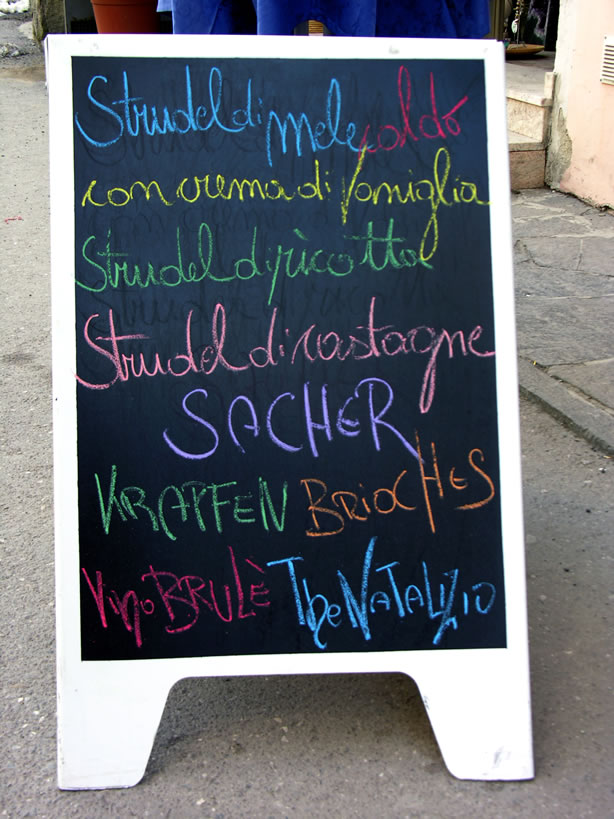 Strudel di mele caldo
con crema di vaniglia
Strudel di ricotta
Strudel di castagne
SACHER
KRAPFEN BRIOCHES
Vino BRULÈ The NATALIZIO